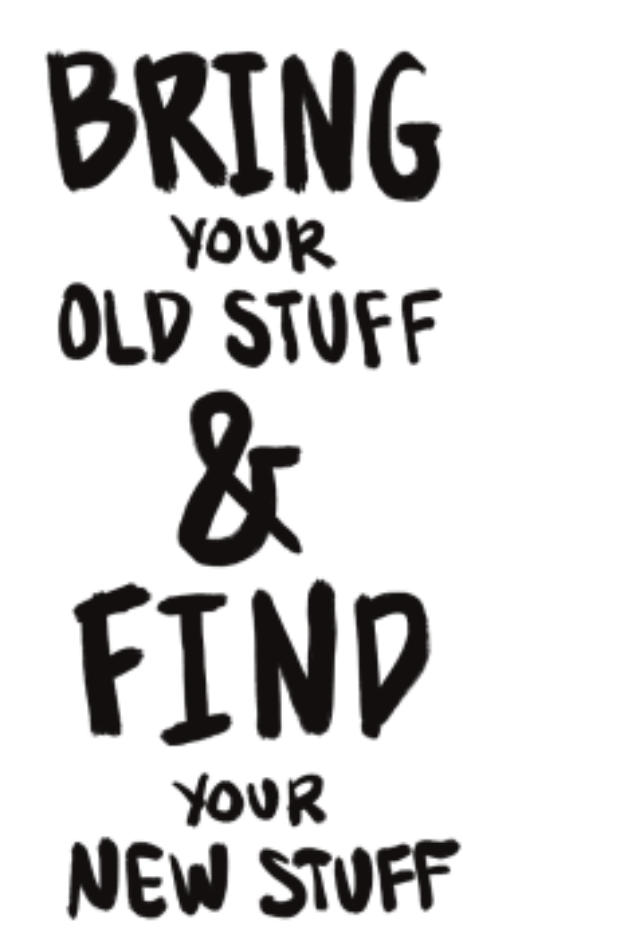 BRING
YOUR
OLD STUFF
&
FIND
YOUR
NEW STUFF